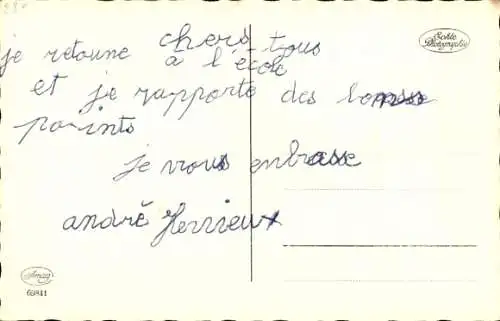 chers tous
je retoune à l'école
et je rapporte des bonsse
points
je vous enbrasse
andré Herrieux
Echte Photographie
Amag
69841